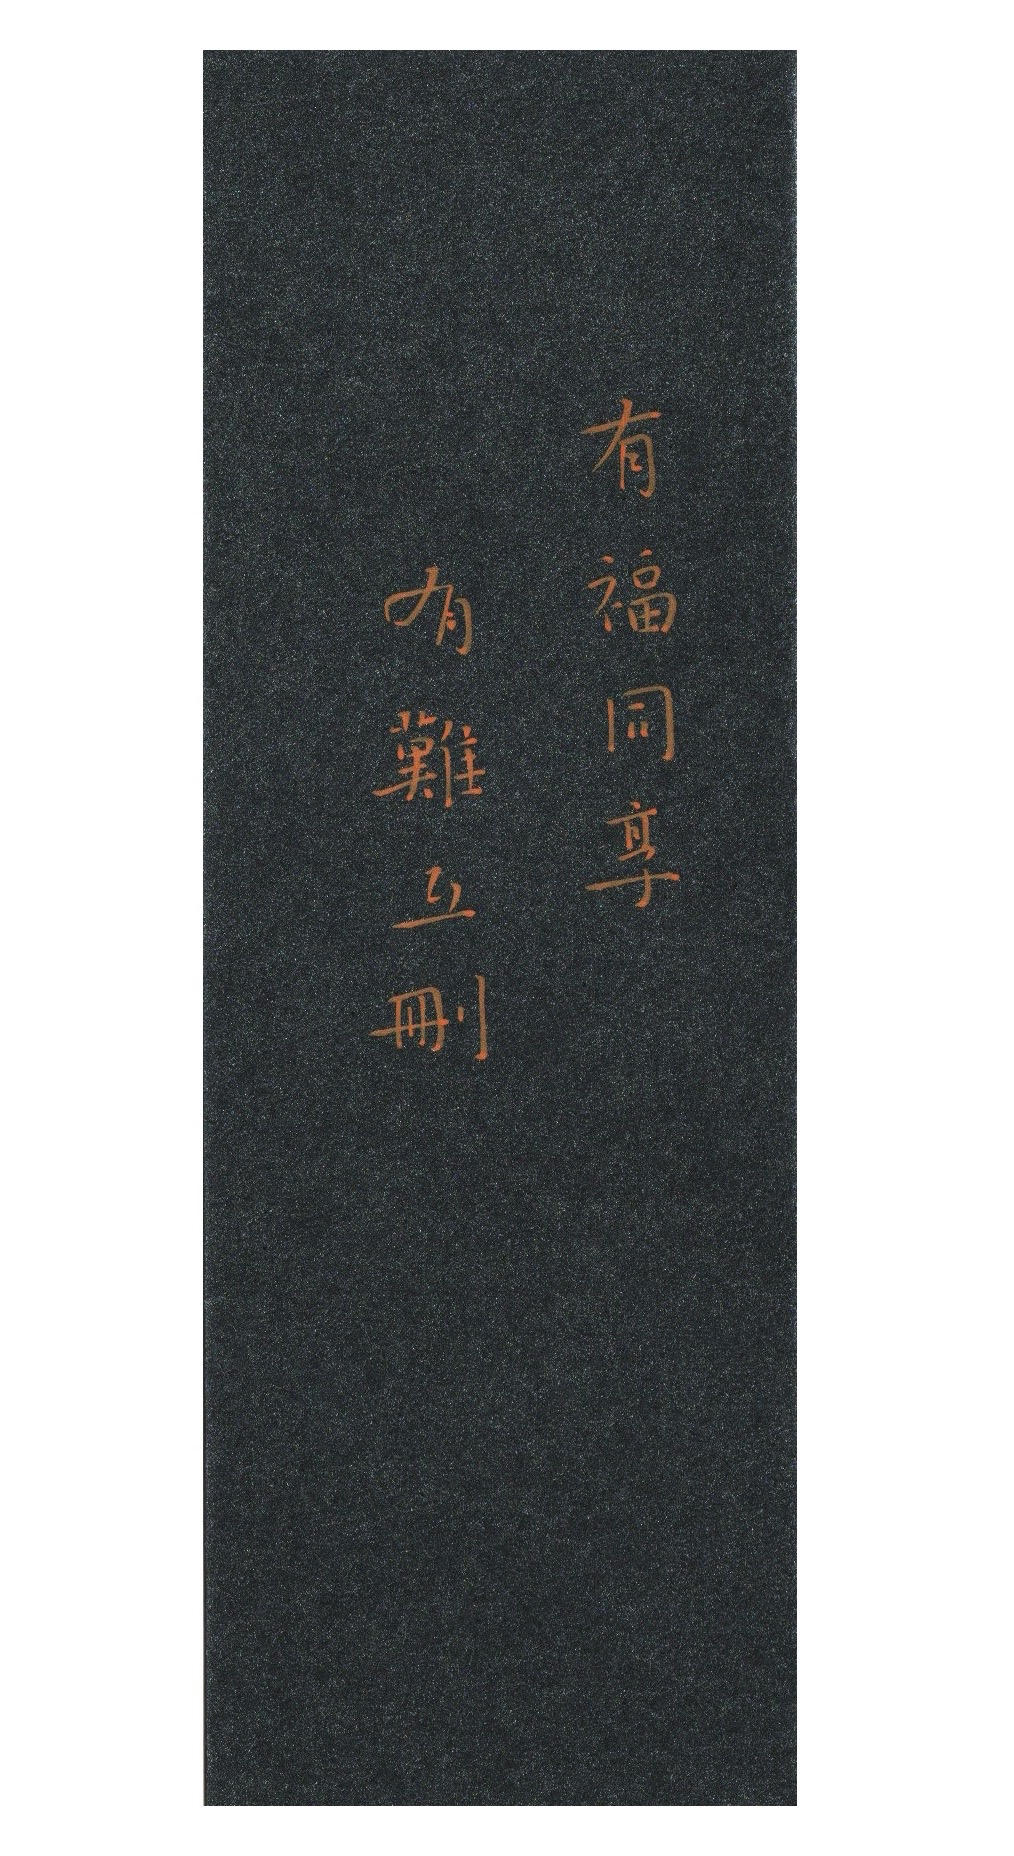 有福同享
有難互刪